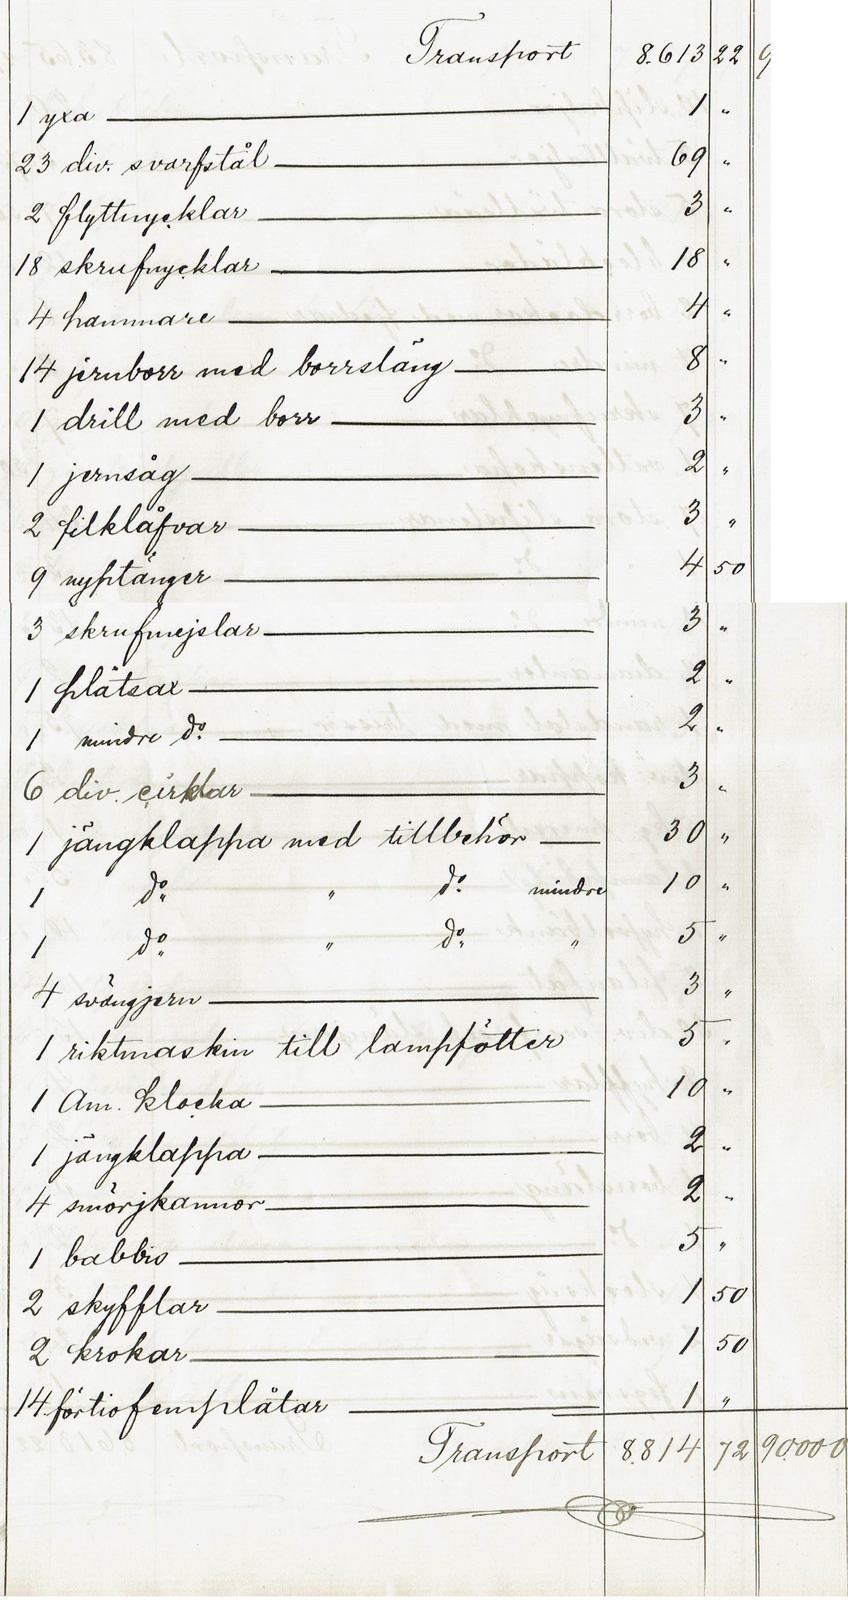 Transport 8.613 22 9
1 yxa 1 "
23 div. svarfstål 69 "
2 flyttnycklar 3 "
18 skrufnycklar 18 "
4 hammare 4 "
14 jernborr med borrsläng 8 "
1 drill med borr 3 "
1 jernsåg 2 "
2 filklåfvar 3 "
9 nyptänger 4 50
3 skrufmejslar 3 "
1 plåtsax 2 "
1 mindre do. 2 "
6 div. cirklar 3 "
1 jängklappa med tillbehör 30 "
1 do. " do. mindre 10 "
1 do. " do. " 5 "
4 svängjern 3 "
1 riktmaskin till lampfötter 5 "
1 Am. klocka 10 "
1 jängklappa 2 "
4 smörjkannor 2 "
1 babbis 5 "
2 skyfflar 1 50
2 krokar 1 50
14 förtiofemplåtar 1 "
Transport 8.814 72 90.000